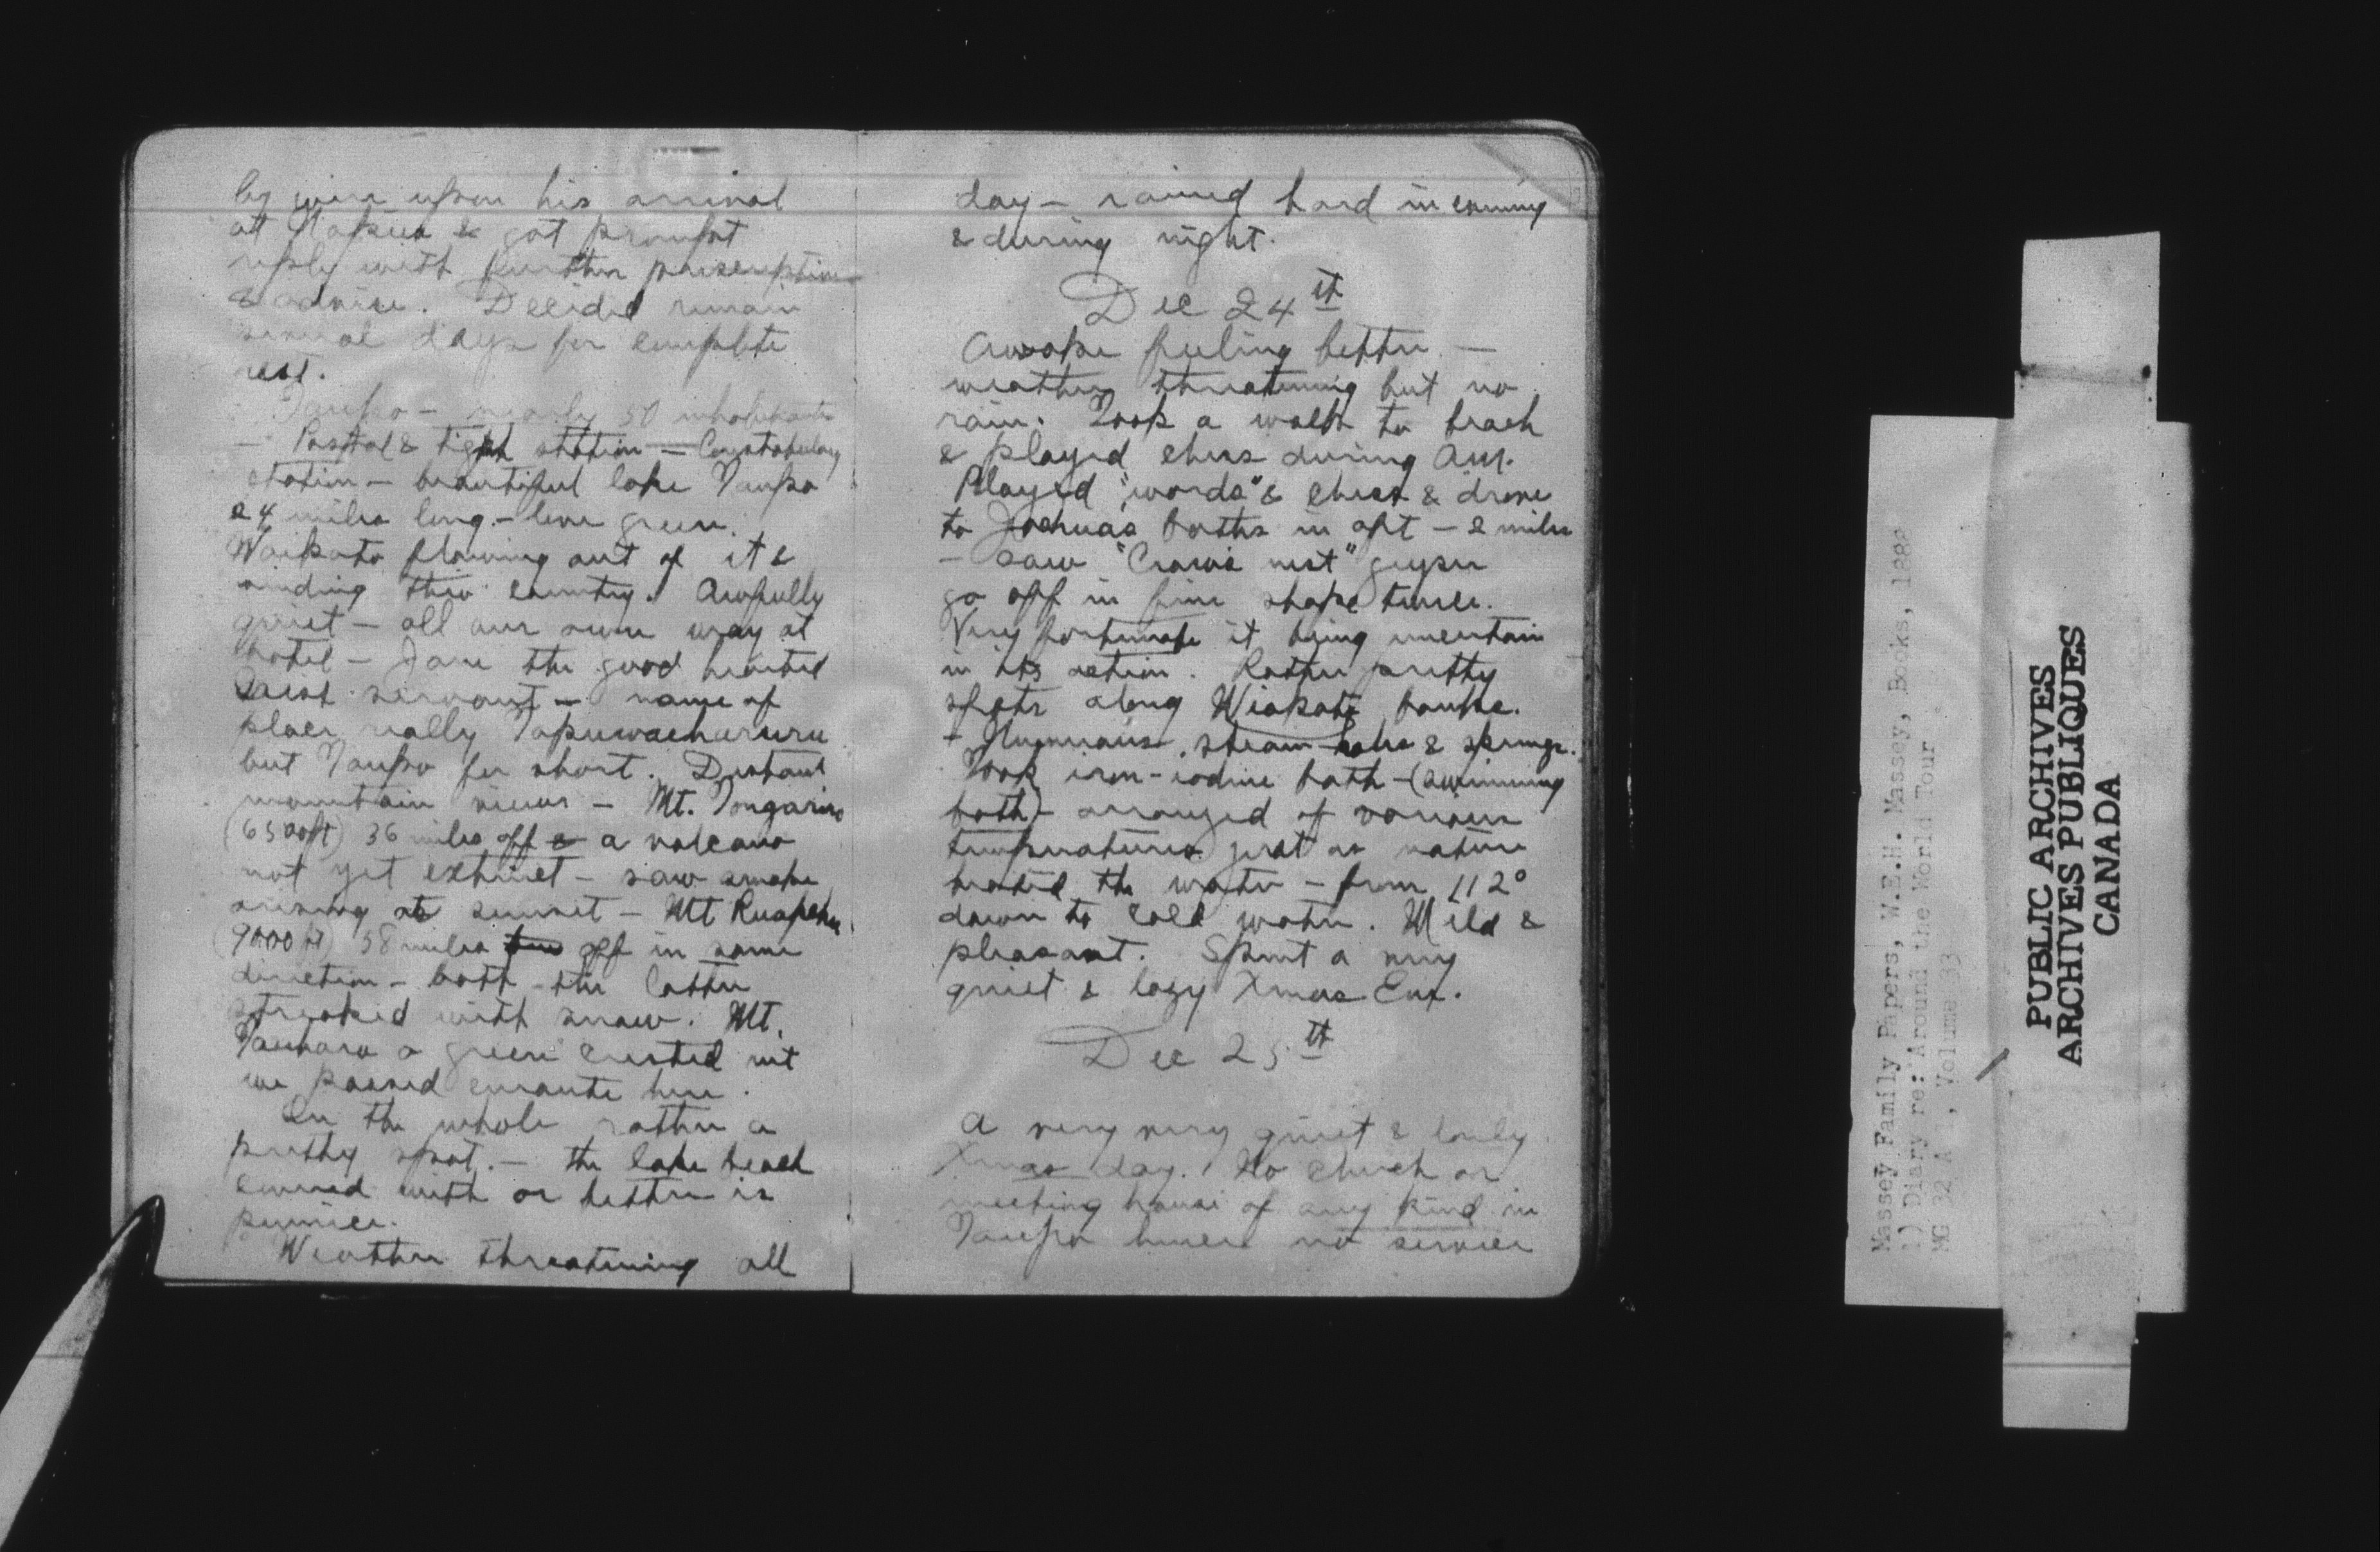 by wire upon his arrival
at Napier & got prompt
reply with further prescription
& advice. Decided remain
several days for complete
rest.
Taupo - nearly 50 inhabitants
- Postal & tigph station - Constabulary
station - beautiful lake Taupo
24 miles long - green.
Waikato flowing out of it &
winding thro' country. Awfully
quiet - all our own way at
hotel - Jane the good hearted
servant - name of
place really Tapuwaeharuru
but Taupo for short. Distant
mountain views - Mt. Tongariro
(6500 ft) 36 miles off & a volcano
not yet extinct - saw smoke
arising at sunset - Mt Ruapehu
(9000 ft) 58 miles off in same
direction - both the latter
streaked with snow. Mt.
Tauhara a green crested mt
we passed enroute here.
On the whole rather a
pretty spot. - the lake beach
covered with as better is
pumice.
Weather threatening all
day - rained hard in evening
& during night.
Dec 24th
Awoke feeling better -
weather threatening but no
rain. Took a walk to beach
& played chess during am.
Played "words" & chess & drove
to Joshua's baths in aft - 2 miles
- saw "Crow's nest" geyser
go off in fine shape twice.
Very fortunate it being uncertain
in its action. Rather pretty
spots along Wiakato banks.
- Numerous steam holes & springs.
Took iron-iodine bath - (swimming
bath) - arranged of various
temperatures just as nature
heated the water - from 112°
down to cold water. Mild &
pleasant. Spent a very
quiet & lazy Xmas Eve.
Dec 25th
A very very quiet & lonely
Xmas day. No church or
meeting house of any kind in
Taupo hence no service
Massey Family Papers, W.E.H. Massey, Books, 1888
1) Diary re: Around the World Tour
MG 32 A 1, Volume 33
PUBLIC ARCHIVES
ARCHIVES PUBLIQUES
CANADA